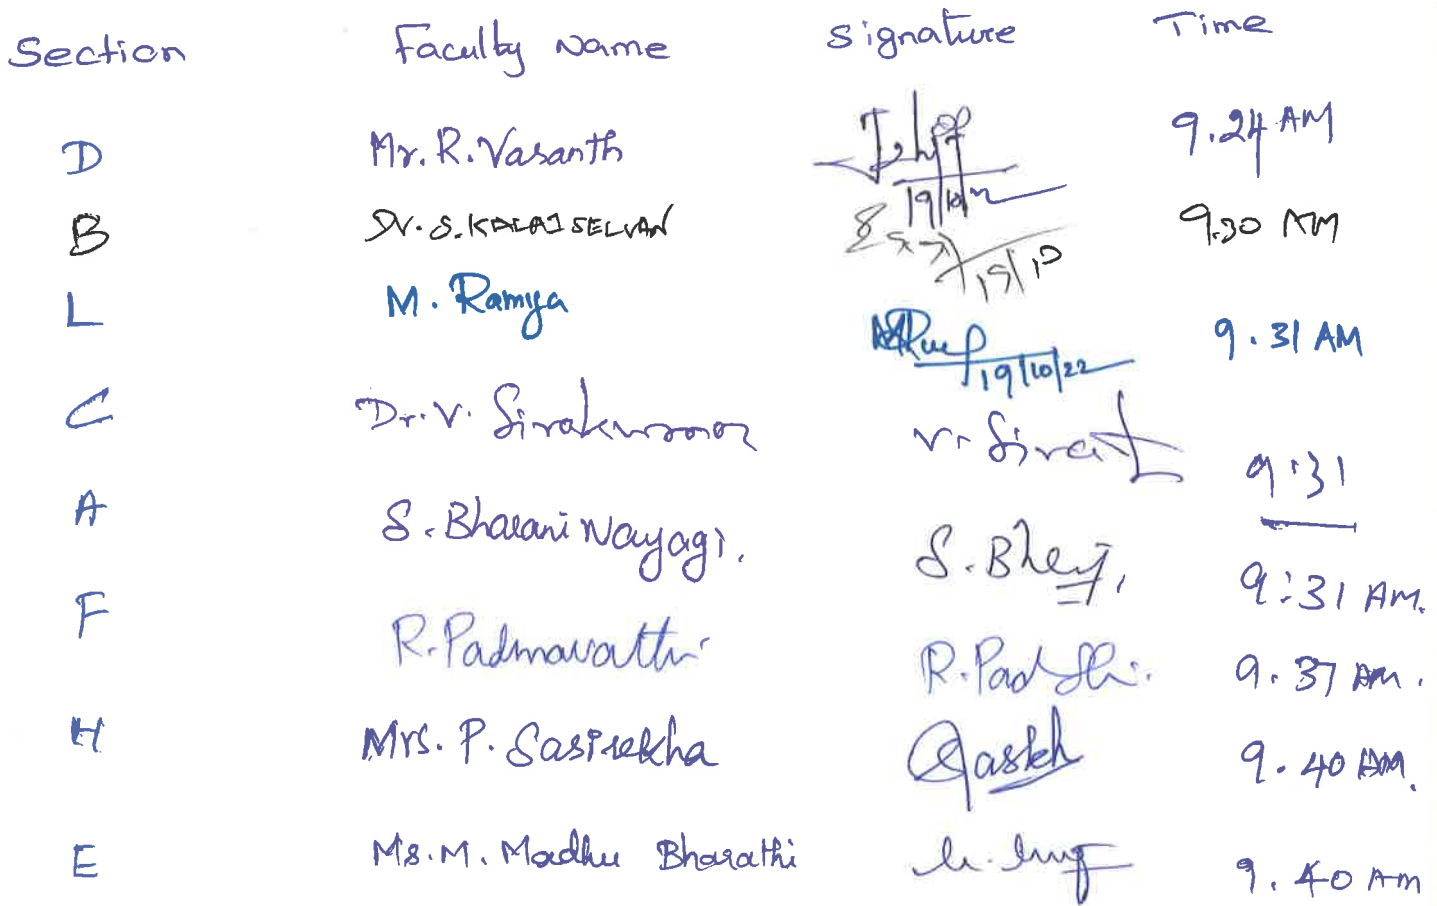 Section Faculty Name Signature Time
D Mr. R. Vasanth 19/10/22 9.24 AM
B Dr. S. KALAISELVAN 19/10 9.30 AM
L M. Ramya 19/10/22 9.31 AM
C Dr. V. Sivakumar V. Siva 9:31
A S. Bhavani Nayagi. S. Bh 9:31 AM.
F R. Padmavathi R. Pad 9.37 AM.
H Mrs. P. Sasirekha Sasikh 9.40 AM.
E Ms. M. Madhu Bharathi 9.40 AM